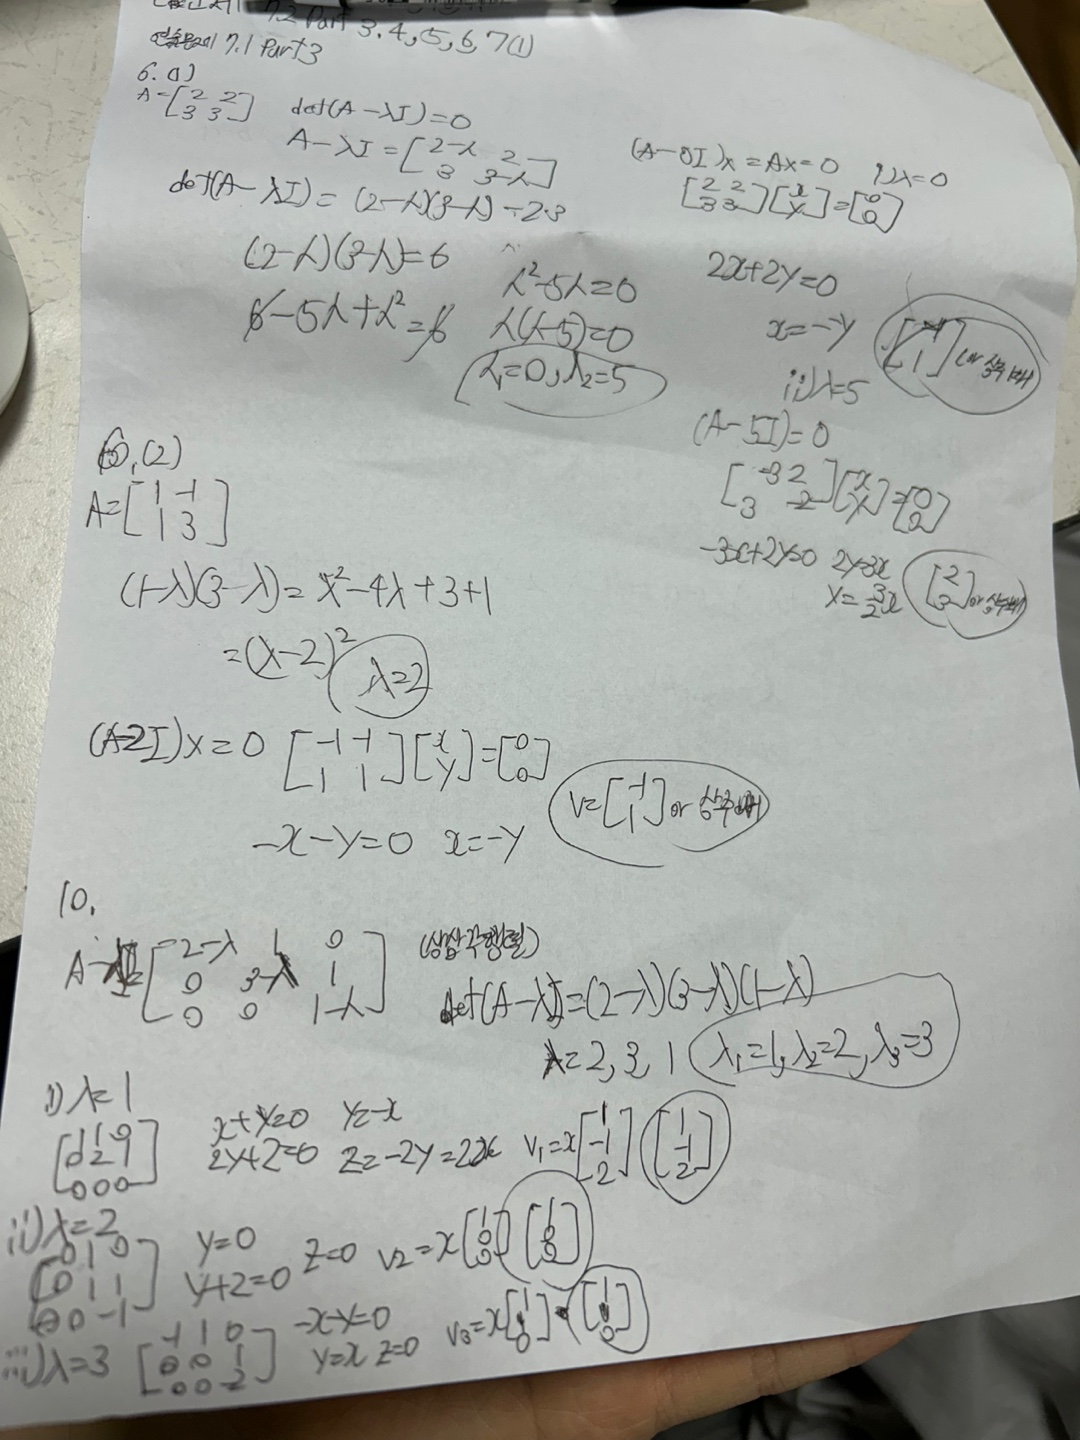 7.2 Part 3.4, 5, 6, 7(1)
연습문제 7.1 Part3
6. (1)
A=[2 2
3 3]
det(A-λI)=0
A-λI=[2-λ 2
3 3-λ]
det(A-λI)=(2-λ)(3-λ)-2·3
(2-λ)(3-λ)=6
6-5λ+λ²=6
λ²-5λ=0
λ(λ-5)=0
λ₁=0, λ₂=5
(A-0I)x=Ax=0 i)λ=0
[2 2
3 3][x
y]=[0
0]
2x+2y=0
x=-y
[-1
1] or 상수배
ii)λ=5
(A-5I)=0
[-3 2
3 -2][x
y]=[0
0]
-3x+2y=0 2y=3x
y=3/2x
[2
3] or 상수배
6,(2)
A=[1 -1
1 3]
(1-λ)(3-λ)=λ²-4λ+3+1
=(λ-2)²
λ=2
(A-2I)x=0 [-1 -1
1 1][x
y]=[0
0]
-x-y=0 x=-y
v=[-1
1] or 상수배
10.
A-λI=[2-λ 1 0
0 3-λ 1
0 0 1-λ]
(상삼각행렬)
det(A-λI)=(2-λ)(3-λ)(1-λ)
λ=2, 3, 1
λ₁=1, λ₂=2, λ₃=3
i)λ=1
[1 1 0
0 2 1
0 0 0]
x+y=0 y=-x
2y+z=0 z=-2y=2x
v₁=x[1
-1
2] [1
-1
2]
ii)λ=2
[0 1 0
0 1 1
0 0 -1]
y=0
y+z=0
z=0 v2=x[1
0
0] [1
0
0]
iii)λ=3 [-1 1 0
0 0 1
0 0 -2]
-x-y=0
y=x z=0
v₃=x[1
1
0] [1
1
0]